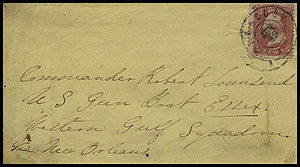 Commander Robert Townsend
U S Gun Boat Essex
Western Gulf Squadron
Via New Orleans